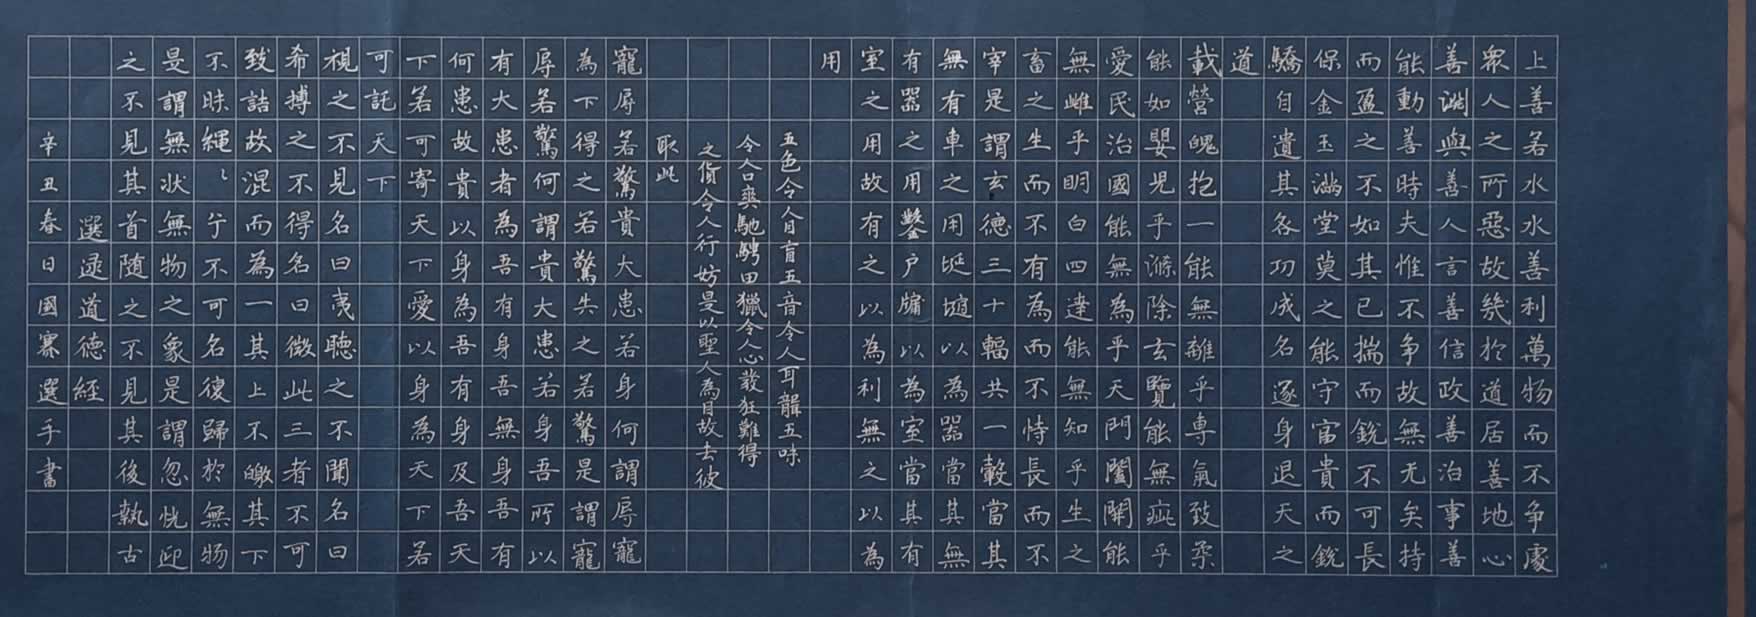 上善若水水善利萬物而不争處
衆人之所惡故幾於道居善地心
善淵與善人言善信政善治事善
能動善時夫惟不争故無尤矣持
而盈之不如其已揣而銳不可長
保金玉滿堂莫之能守富貴而銳
驕自遺其咎功成名遂身退天之
道
載營魄抱一能無離乎專氣致柔
能如嬰児乎滌除玄覽能無疵乎
愛民治國能無為乎天門闔開能
無雌乎明白四達能無知乎生之
畜之生而不有為而不恃長而不
宰是謂玄德三十輻共一轂當其
無有車之用埏埴以為器當其無
有器之用鑿户牖以為室當其有
室之用故有之以為利無之以為
用
五色令人目盲五音令人耳聾五味
令人口爽馳騁田獵令人心發狂難得
之貨令人行妨是以聖人為目故去彼
取此
寵辱若驚貴大患若身何謂辱寵
為下得之若驚失之若驚是謂寵
辱若驚何謂貴大患若身吾所以
有大患者為吾有身吾無身吾有
何患故貴以身為吾有身及吾天
下若可寄天下愛以身為天下若
可託天下
視之不見名曰夷聽之不聞名曰
希搏之不得名曰微此三者不可
致詰故混而為一其上不皦其下
不昧繩〻兮不可名復歸於無物
是謂無状無物之象是謂忽恍迎
之不見其首随之不見其後執古
選逯道德經
辛丑春日國賽選手書